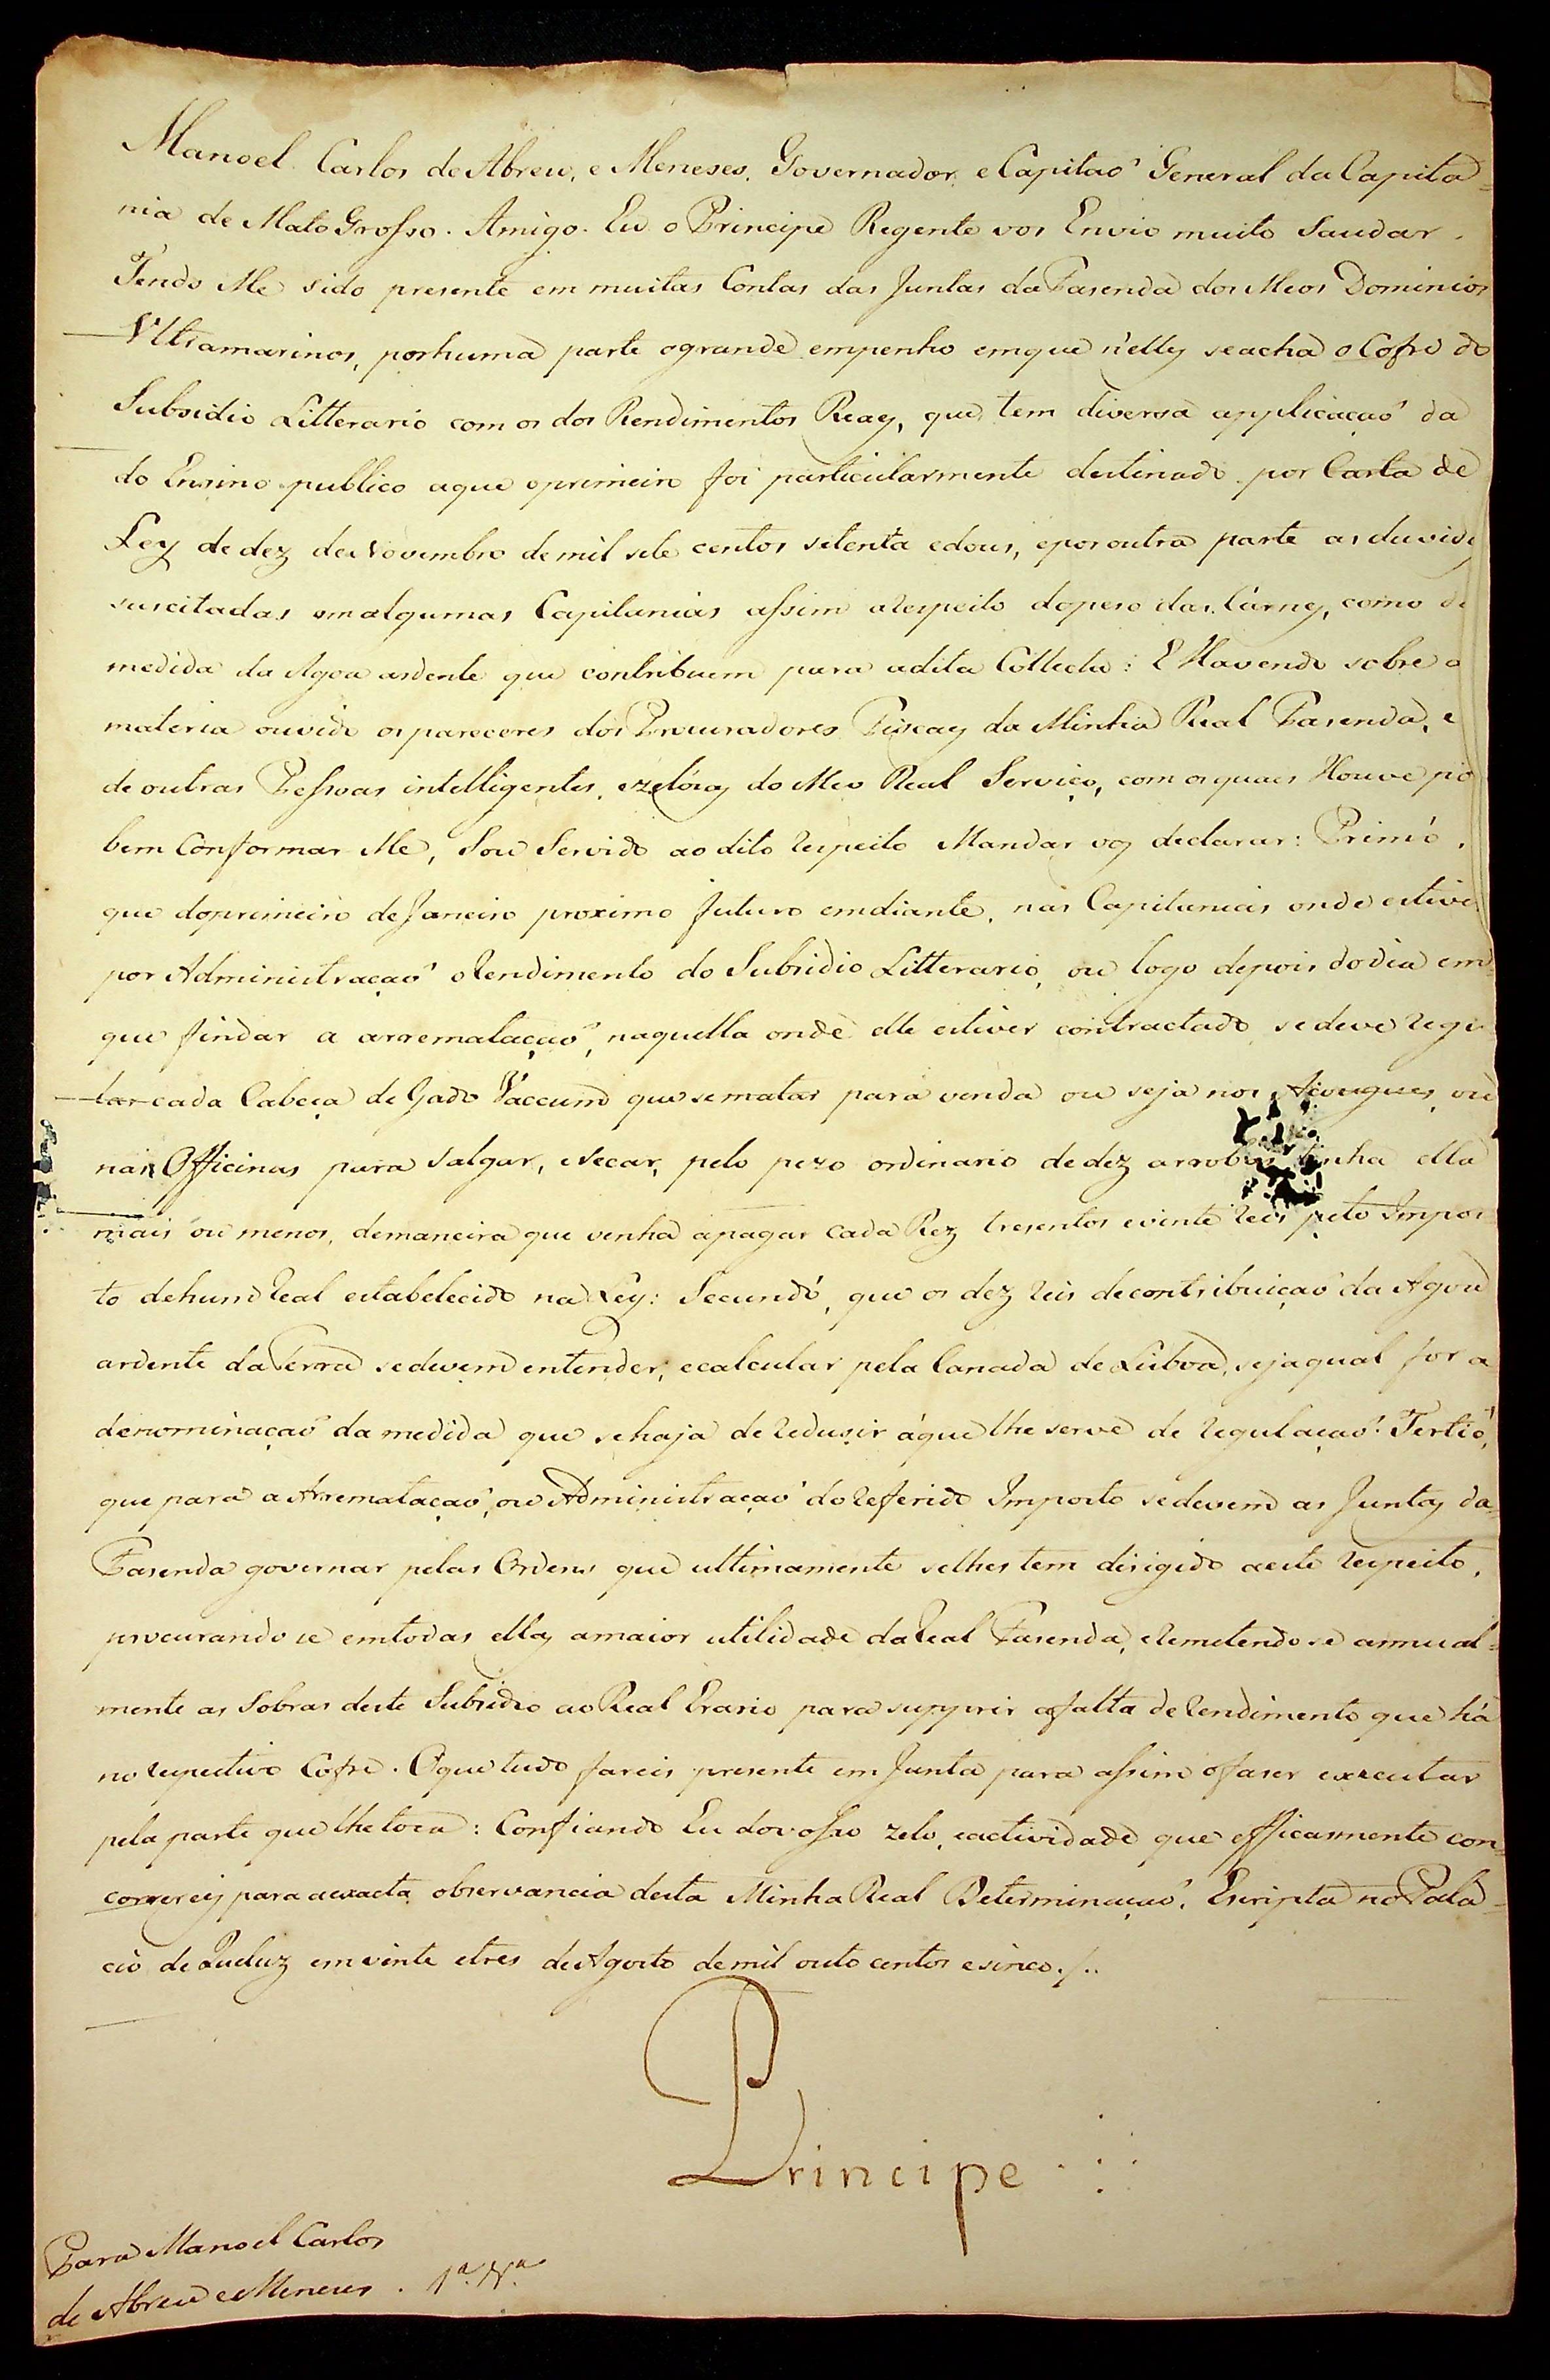 Manoel Carlos de Abreu, e Meneses, Governador e Capitaõ General da Capita=
nia de Mato Grosso. Amigo. Eu o Principe Regente vos Envio muito Saudar.
Tendo Me sido presente em muitas Contas das Juntas da Fasenda dos Meos Dominios
Vltramarinos, por huma parte o grande empenho em que n'elles se acha o Cofre do
Subsidio Litterario com os dos Rendimentos Reaes, que tem diversa applicaçaõ da
do Ensino publico a que o primeiro foi particularmente destinado por Carta de
Ley de dez de Novembro de mil sete centos setenta e dous, e por outra parte as duvidas
suscitadas em algumas Capitanias assim a respeito do peso das Carnes, como da
medida da Agoa ardente que contribuem para a dita Collecta: E Havendo sobre a
materia ouvido os pareceres dos Procuradores Fiscaes da Minha Real Fasenda, e
de outras Pessoas intelligentes, e zelósas do Meo Real Serviço, com os quaes Houve por
bem Conformar Me, Sou Servido ao dito respeito Mandar vos declarar: Primó,
que do primeiro de Janeiro proximo futuro em diante, nas Capitanias onde estiver
por Administraçaõ o rendimento do Subsidio Litterario, ou logo depois do dia em
que findar a arremataçaõ, naquella onde elle estiver contractado, se deve regu
lar cada Cabeça de Gado Vaccum que se matar para venda ou seja nos Açougues, ou
nas Officinas para salgar, e secar, pelo pezo ordinario de dez arrobas tenha ella
mais ou menos, de maneira que venha a pagar cada Rez tresentos e vinte reis pelo Impos
to de hum real estabelecido na Ley: Secundó, que os dez reis de contribuiçaõ da Agoa
ardente da Terra se devem entender, e calcular pela Canada de Lisboa, seja qual for a
denominaçaõ da medida que se haja de redusir á que lhe serve de regulaçaõ: Tertió,
que para a Arremataçaõ, ou Administraçaõ do referido Imposto se devem as Juntas da
Fasenda governar pelas Ordens que ultimamente se lhes tem dirigido a este respeito,
procurando se em todas ellas a maior utilidade da Real Fasenda, e remetendo se annual=
mente as Sobras deste Subsidio ao Real Erario para supprir a falta de rendimento que há
no respectivo Cofre. O que tudo fareis presente em Junta para assim o faser executar
pela parte que lhe toca: Confiando Eu do vosso zelo, e actividade que efficasmente con=
correreis para a exacta observancia desta Minha Real Determinaçaõ. Escripta no Pala=
cio de Queluz em vinte e tres de Agosto de mil outo centos e sinco./..
Principe
Para Manoel Carlos
de Abreu e Meneses. 1ª. Vª.